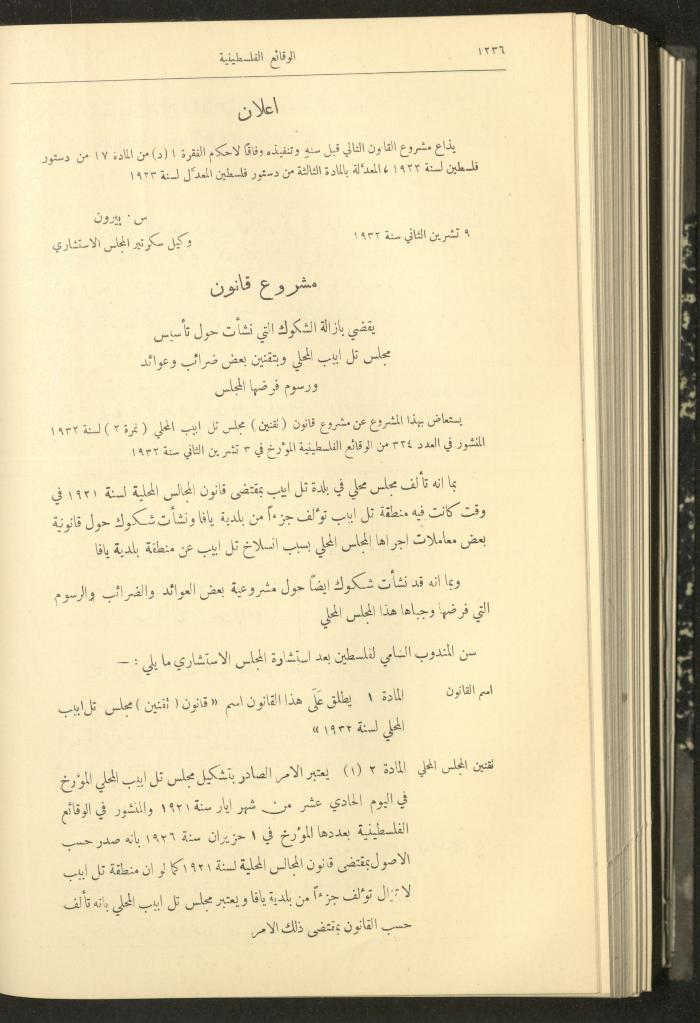 ١٢٣٦
الوقائع الفلسطينية
اعلان
يذاع مشروع القانون التالي قبل سنه وتنفيذه وفاقًا لاحكام الفقرة ١ (د) من المادة ١٧ من دستور
فلسطين لسنة ١٩٢٢ ، المعدّلة بالمادة الثالثة من دستور فلسطين المعدّل لسنة ١٩٢٣
س . بيرون
٩ تشرين الثاني سنة ١٩٣٢
وكيل سكرتير المجلس الاستشاري
مشروع قانون
يقضي بازالة الشكوك التي نشأت حول تأسيس
مجلس تل ابيب المحلي وبتقنين بعض ضرائب وعوائد
ورسوم فرضها المجلس
يستعاض بهذا المشروع عن مشروع قانون ( تقنين ) مجلس تل ابيب المحلي ( نمرة ٢ ) لسنة ١٩٣٢
المنشور في العدد ٣٢٤ من الوقائع الفلسطينية المؤرخ في ٣ تشرين الثاني سنة ١٩٣٢
بما انه تألف مجلس محلي في بلدة تل ابيب بمقتضى قانون المجالس المحلية لسنة ١٩٢١ في
وقت كانت فيه منطقة تل ابيب تؤلف جزءاً من بلدية يافا ونشأت شكوك حول قانونية
بعض معاملات اجراها المجلس المحلي بسبب انسلاخ تل ابيب عن منطقة بلدية يافا
وبما انه قد نشأت شكوك ايضًا حول مشروعية بعض العوائد والضرائب والرسوم
التي فرضها وجباها هذا المجلس المحلي
سن المندوب السامي لفلسطين بعد استشارة المجلس الاستشاري ما يلي : —
اسم القانون
المادة ١ يطلق عَلَى هذا القانون اسم « قانون ( تقنين ) مجلس تل ابيب
المحلي لسنة ١٩٣٢ »
تقنين المجلس المحلي
المادة ٢ (١) يعتبر الامر الصادر بتشكيل مجلس تل ابيب المحلي المؤرخ
في اليوم الحادي عشر من شهر ايار سنة ١٩٢١ والمنشور في الوقائع
الفلسطينية بعددها المؤرخ في ١ حزيران سنة ١٩٢٦ بانه صدر حسب
الاصول بمقتضى قانون المجالس المحلية لسنة ١٩٢١ كما لو ان منطقة تل ابيب
لا تزال تؤلف جزءاً من بلدية يافا ويعتبر مجلس تل ابيب المحلي بانه تألف
حسب القانون بمقتضى ذلك الامر